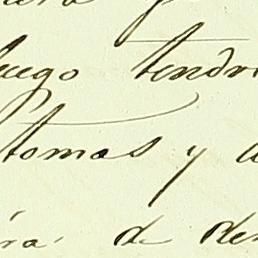 luego tendr
tomas y a
ra. de de